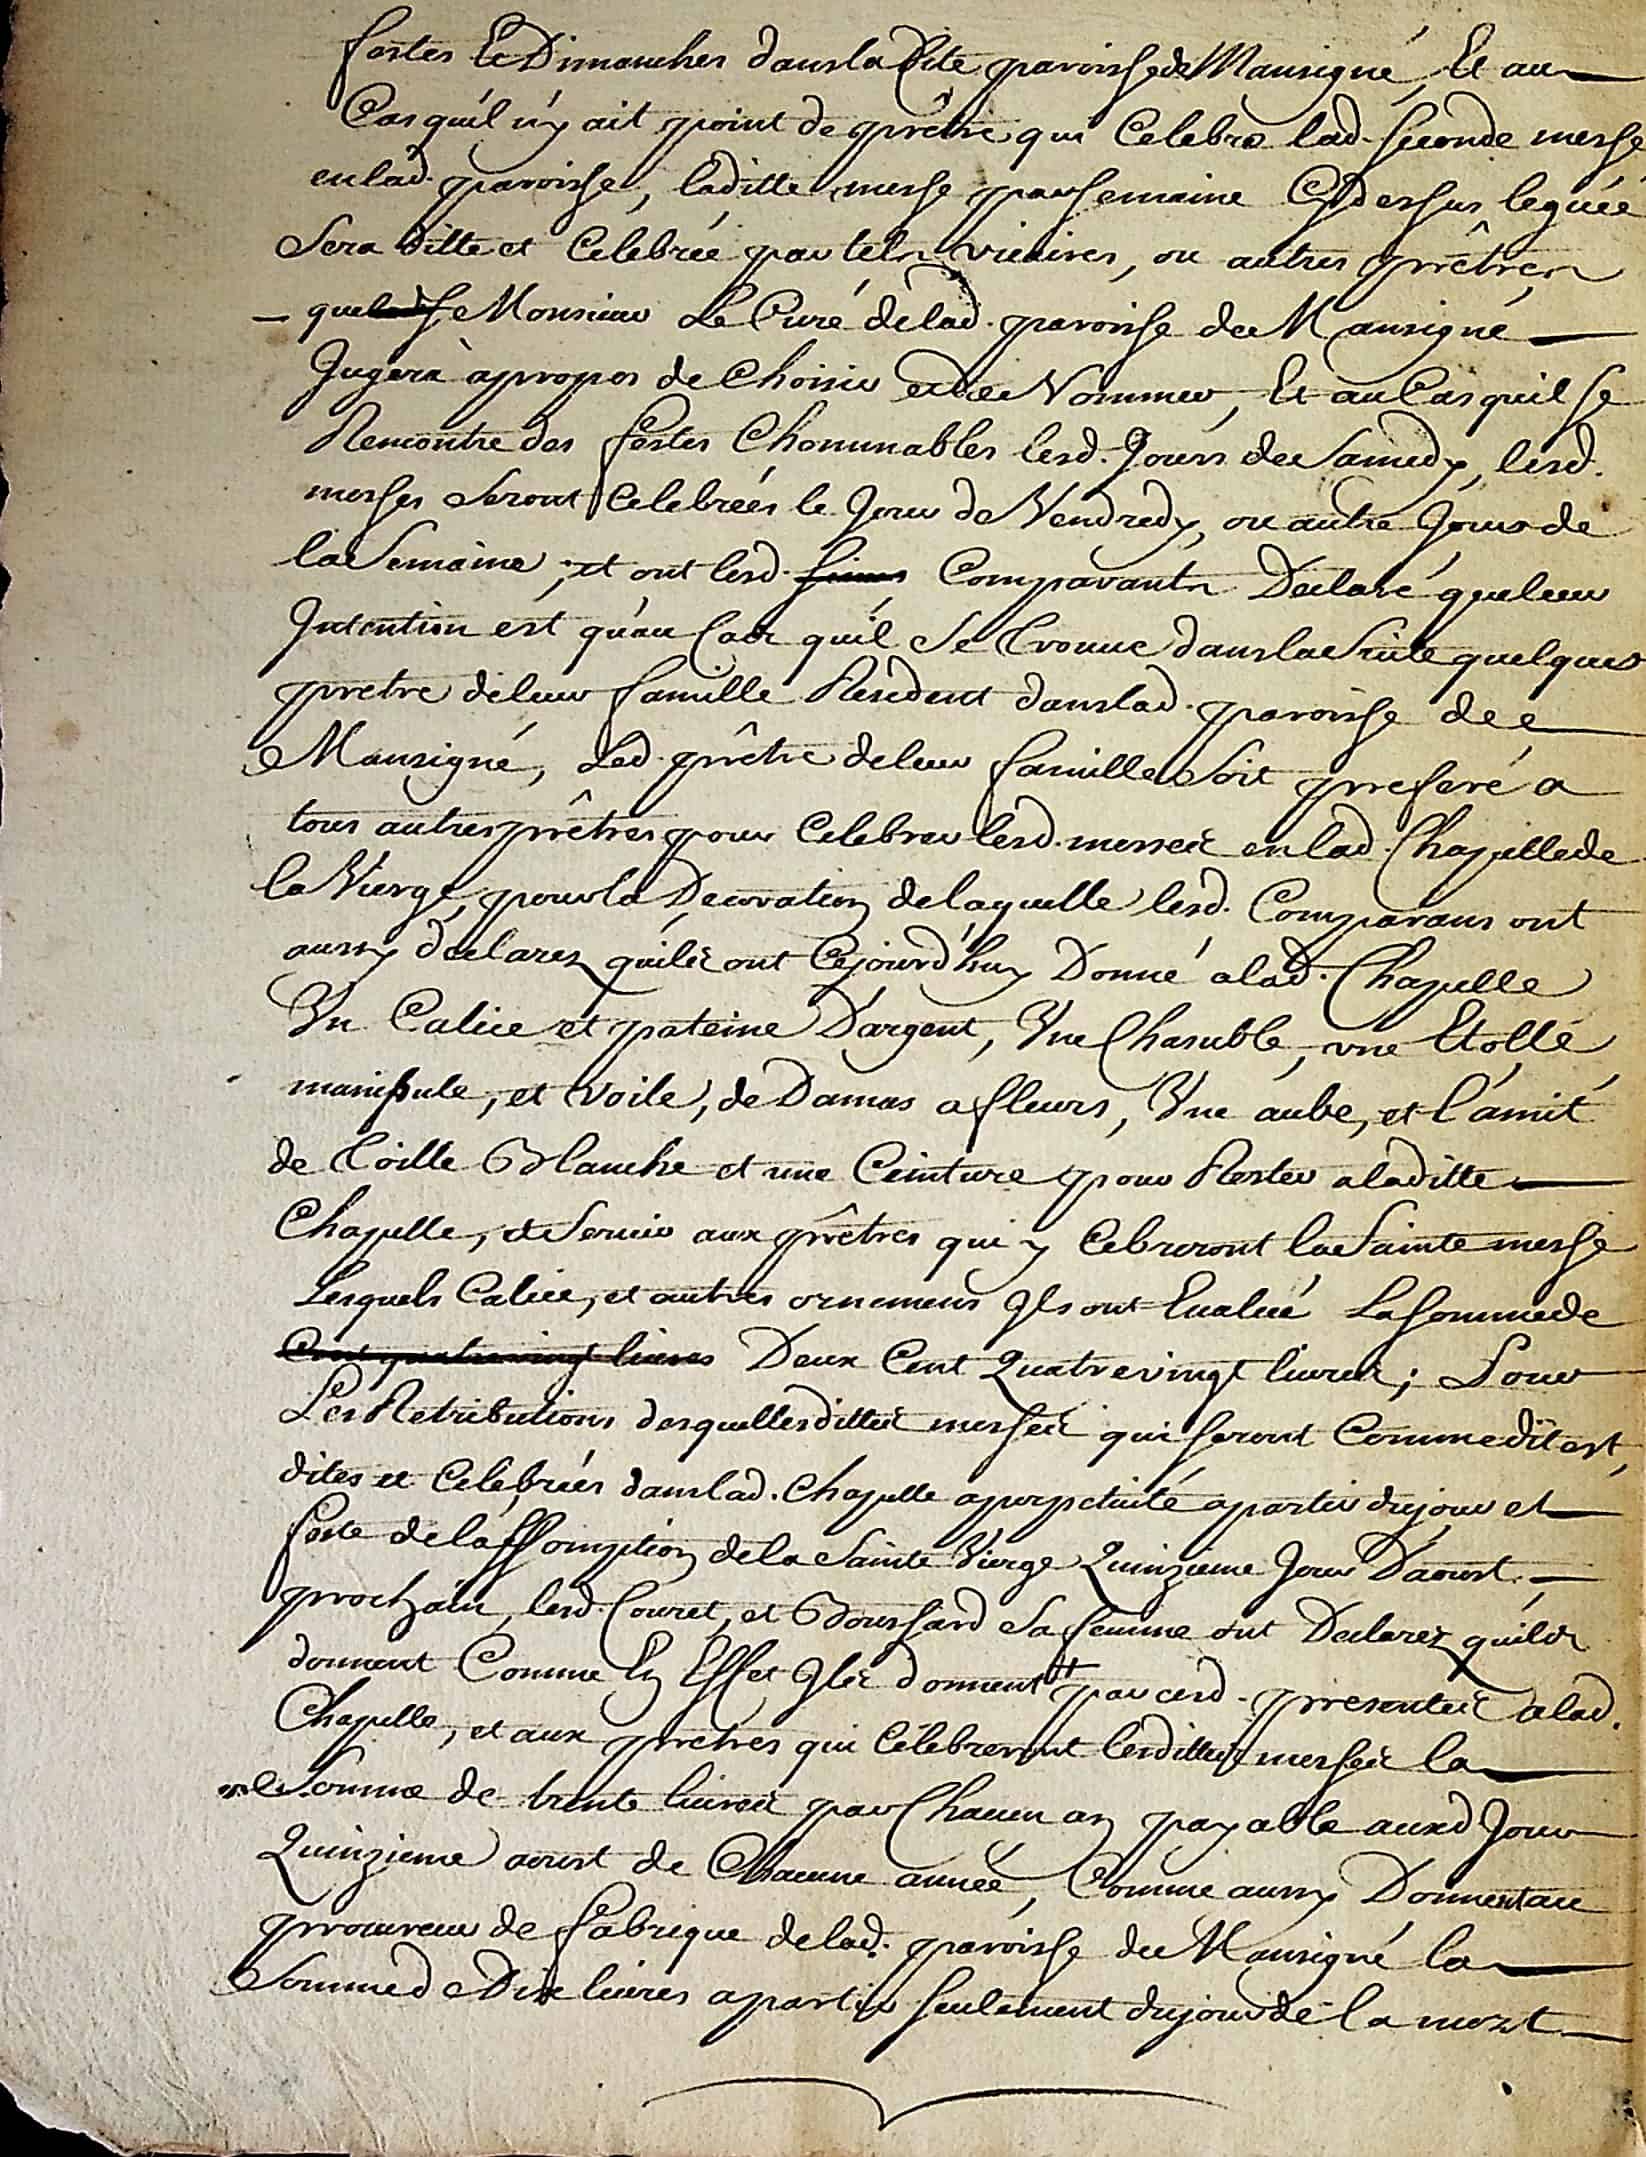 festes Et Dimanches dans la dite paroisse de Mansigné, Et au
Cas qu'il n'y ait point de prêtre qui Celebre lad. seconde messe
en lad. paroisse, laditte messe par semaine Cy dessus leguée
Sera ditte et Celebrée par tels vicaires, ou autres prêtres
que Monsieur Le Curé de lad. paroisse de Mansigné
Jugera àpropos de Choisir et de Nommer, Et au Cas qu'il se
Rencontre des festes Chommables lesd. Jours de Samedy, lesd.
messes Seront Celebrées le Jour de Vendredy, ou autre Jour de
la Semaine, et ont lesd. Comparants Declaré que leur
Intention est qu'au Cas qu'il Se trouve dans la Suite quelques
pretre de leur famille Residant dans lad. paroisse de
Mansigné, Led. prêtre de leur famille Soit preferé a
tous autres prêtres pour Celebrer lesd. messes en lad. Chapelle de
la Vierge, pour la Decoration de laquelle lesd. Comparans ont
aussy declarez qu'ils ont Cejourd'huy Donné a lad. Chapelle
Un Calice et pateine D'argent, Une Chasuble, une Etolle
manipule, et voile, de Damas a fleurs, Une aube, et l'amit
de toille Blanche et une Ceinture pour Rester a laditte
Chapelle, et Servir aux prêtres qui y Cebreront la Sainte messe
Lesquels Calice, et autres ornemens Ils ont Evalué La somme de
Cent quatre vingt livres Deux Cent Quatrevingt livres; Pour
Les Retributions desquelles dittes messes qui seront Comme dit est,
dites et Celebrées dans lad. Chapelle a perpetuité a partir du jour et
feste de l'assomption de la Sainte Vierge Quinzieme Jour D'aoust
prochain, lesd. Couret, et Boussard Sa femme ont Declarez qu'ils
donnent Comme En Effet Ils donnent par cesd. presentes a lad.
Chapelle, et aux pretres qui Célebreront lesdittes messes la
Somme de trente livres par Chacun an payable auxd Jour
Quinzieme aoust de Chacune année, Comme aussy Donnent au
procureur de fabrique de lad. paroisse de Mansigné la
Somme de Dix livres a partir seulement du jour de la mort